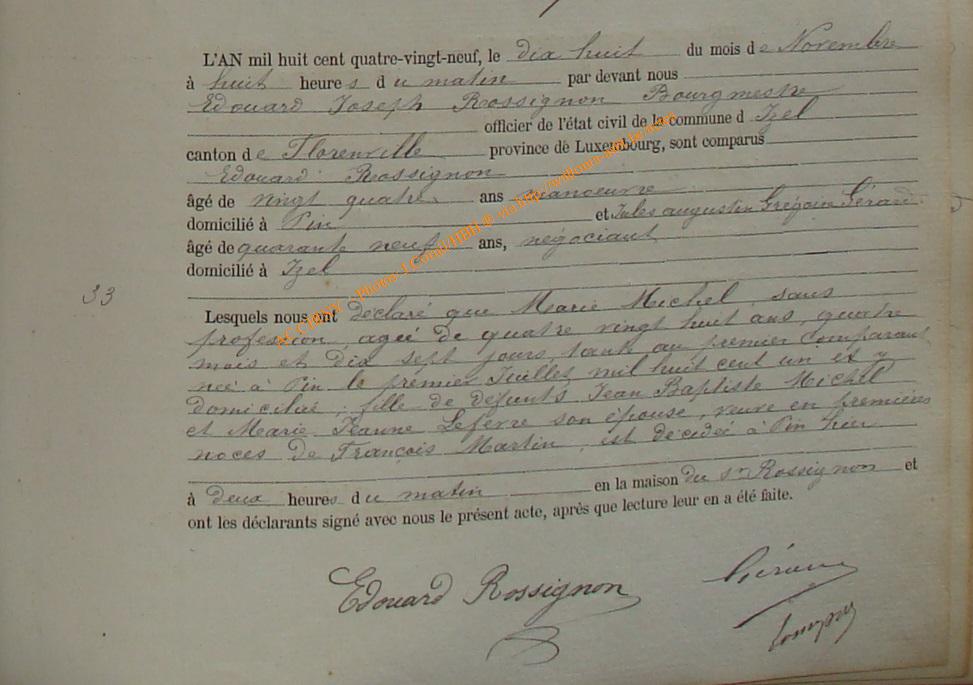 L'AN mil huit cent quatre-vingt-neuf, le dix huit du mois de Novembre
à huit heures du matin par devant nous
Edouard Joseph Rossignon Bourgmestre
officier de l'état civil de la commune d Izel
canton de Florenville province de Luxembourg, sont comparus
Edouard Rossignon
âgé de vingt quatre ans manoeuvre
domicilié à Pin et Jules augustin Grégoire Gérard
âgé de quarante neuf ans, négociant
domicilié à Izel
33
Lesquels nous ont déclaré que Marie Michel, sans
profession, agée de quatre vingt huit ans, quatre
mois et dix sept jours, tante au premier comparant
née à Pin le premier Juillet mil huit cent un et y
domiciliée, fille de défunts Jean Baptiste Michel
et Marie Jeanne Lefevre son épouse, veuve en premières
noces de François Martin, est décédée à Pin hier
à deux heures du matin en la maison du sr Rossignon et
ont les déclarants signé avec nous le présent acte, après que lecture leur en a été faite.
Edouard Rossignon Gérard